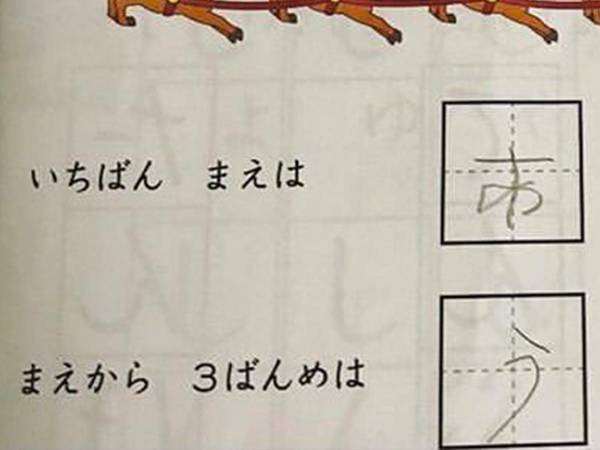 いちばん まえは あ
まえから 3ばんめは う